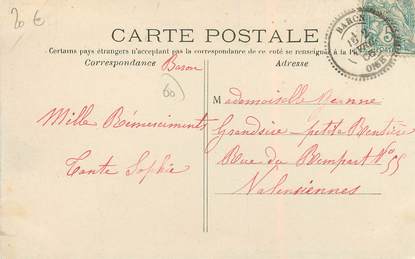 20 €
CARTE POSTALE
Certains pays étrangers n'acceptant pas la correspondance de ce côté se renseigner à la
Correspondance
Baron
Adresse
60
Mademoiselle
Mille Rémerciments
Grandsire - petite Rentière
Tante Sophie
Rue du Rempart No 55
Valensiennes
OISE